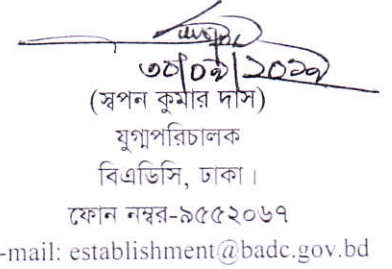 (স্বপন কুমার দাস)
যুগ্মপরিচালক
বিএডিসি, ঢাকা।
ফোন নম্বর-৯৫৫২০৬৭
-mail: establishment@badc.gov.bd